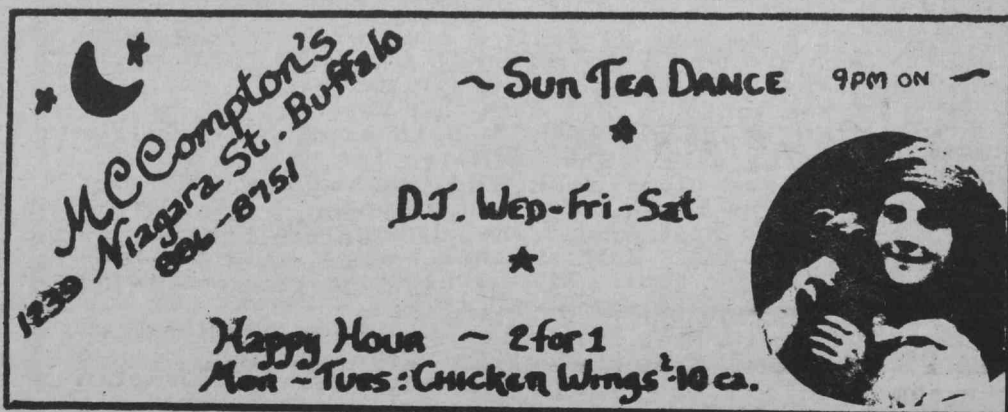 McCompton's
1239 Niagara St. Buffalo
886-8751
~ Sun Tea Dance 9PM ON ~
D.J. Wed-Fri-Sat
Happy Hour ~ 2 for 1
Mon - Tues: Chicken Wings -10 ea.